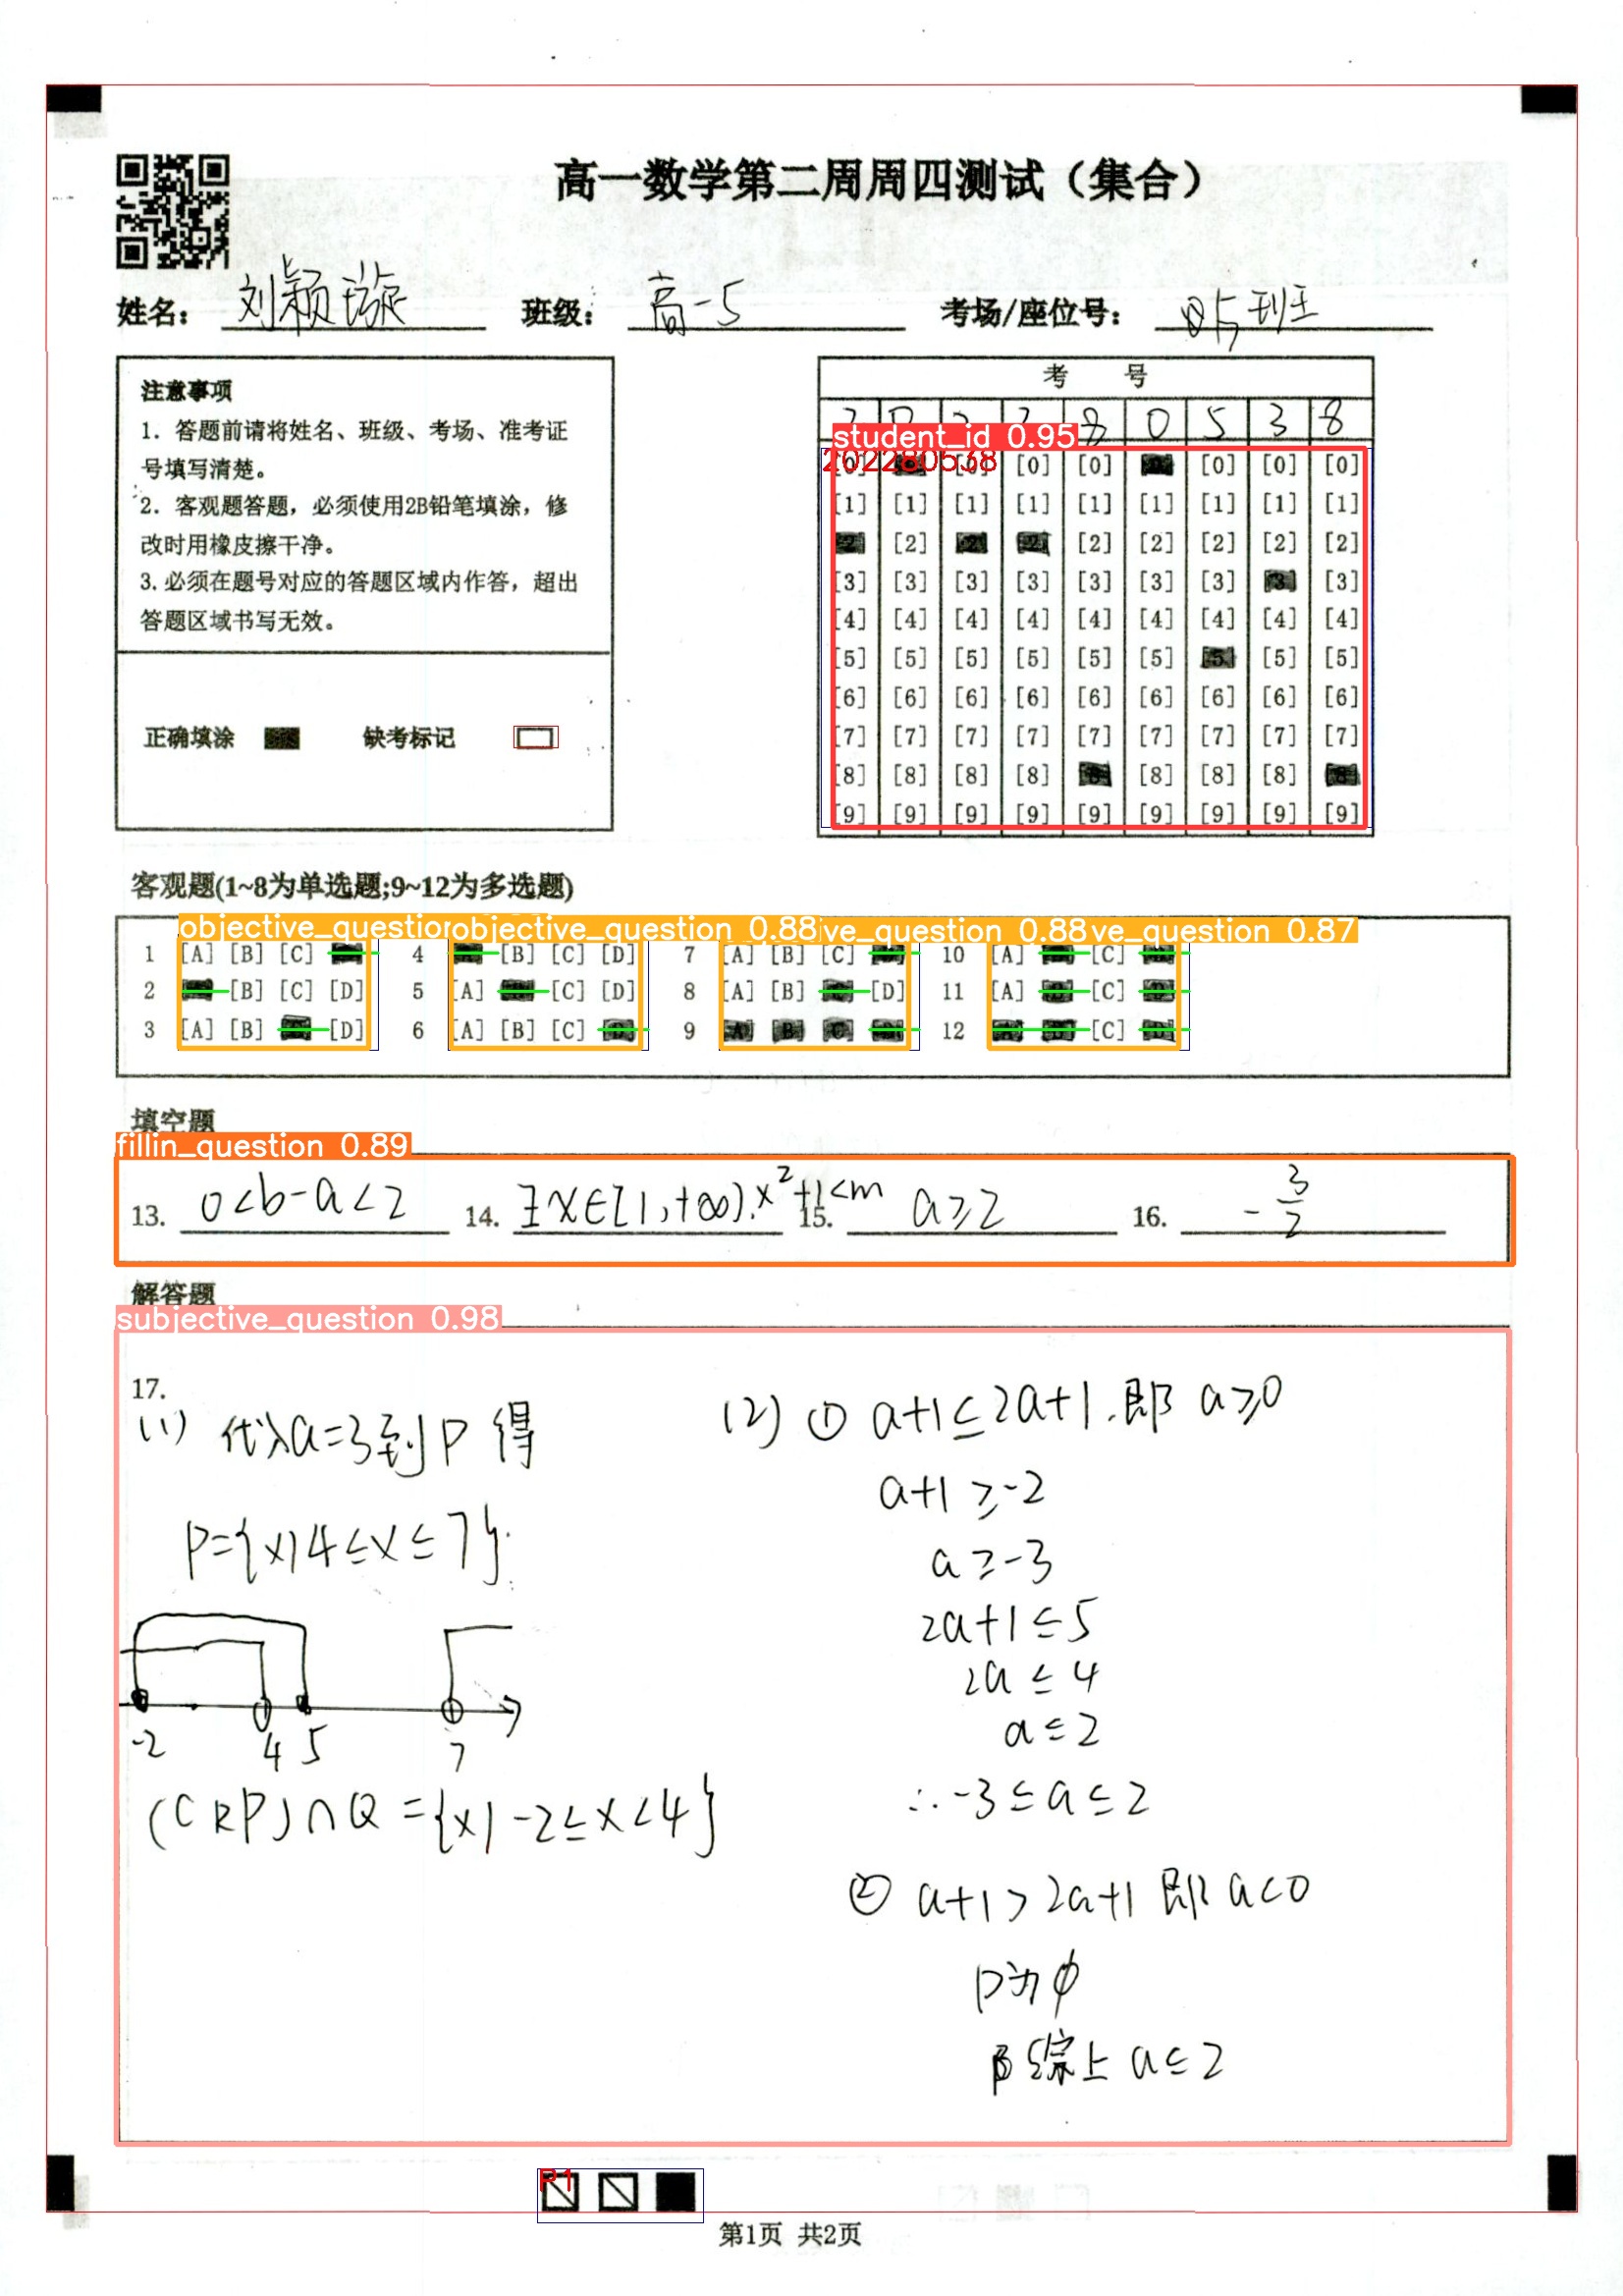 高一数学第二周周四测试（集合）
姓名： 刘颖璇 班级： 高一5 考场/座位号： 班
注意事项
1. 答题前请将姓名、班级、考场、准考证
号填写清楚。
2. 客观题答题，必须使用2B铅笔填涂，修
改时用橡皮擦干净。
3.必须在题号对应的答题区域内作答，超出
答题区域书写无效。
正确填涂 缺考标记
考 号
2 0 2 2 8 0 5 3 8
student_id 0.95
202280538
[0] [0] [0] [0] [0] [0] [0]
[1] [1] [1] [1] [1] [1] [1] [1] [1]
[2] [2] [2] [2] [2] [2] [2] [2] [2]
[3] [3] [3] [3] [3] [3] [3] [3] [3]
[4] [4] [4] [4] [4] [4] [4] [4] [4]
[5] [5] [5] [5] [5] [5] [5] [5] [5]
[6] [6] [6] [6] [6] [6] [6] [6] [6]
[7] [7] [7] [7] [7] [7] [7] [7] [7]
[8] [8] [8] [8] [8] [8] [8] [8] [8]
[9] [9] [9] [9] [9] [9] [9] [9] [9]
客观题(1~8为单选题;9~12为多选题)
objective_question objective_question 0.88 ve_question 0.88 ve_question 0.87
1 [A] [B] [C] 4 [B] [C] [D] 7 [A] [B] [C] 10 [A] [C]
2 [B] [C] [D] 5 [A] [C] [D] 8 [A] [B] [D] 11 [A] [C]
3 [A] [B] [D] 6 [A] [B] [C] [D] 9 [A] [B] [C] 12 [C]
填空题
fillin_question 0.89
13. 0<b-a<2 14. ∃x∈[1,+∞).x²+1<m 15. a≥2 16. -3/2
解答题
subjective_question 0.98
17.
(1) 代入a=3到P得
P={x|4≤x≤7}.
-2 4 5 7
(CRP)∩Q={x|-2≤x<4}
(2) ① a+1≤2a+1.即 a≥0
a+1≥-2
a≥-3
2a+1≤5
2a≤4
a≤2
∴-3≤a≤2
② a+1>2a+1 即 a<0
P为∅
综上 a≤2
P1
第1页 共2页